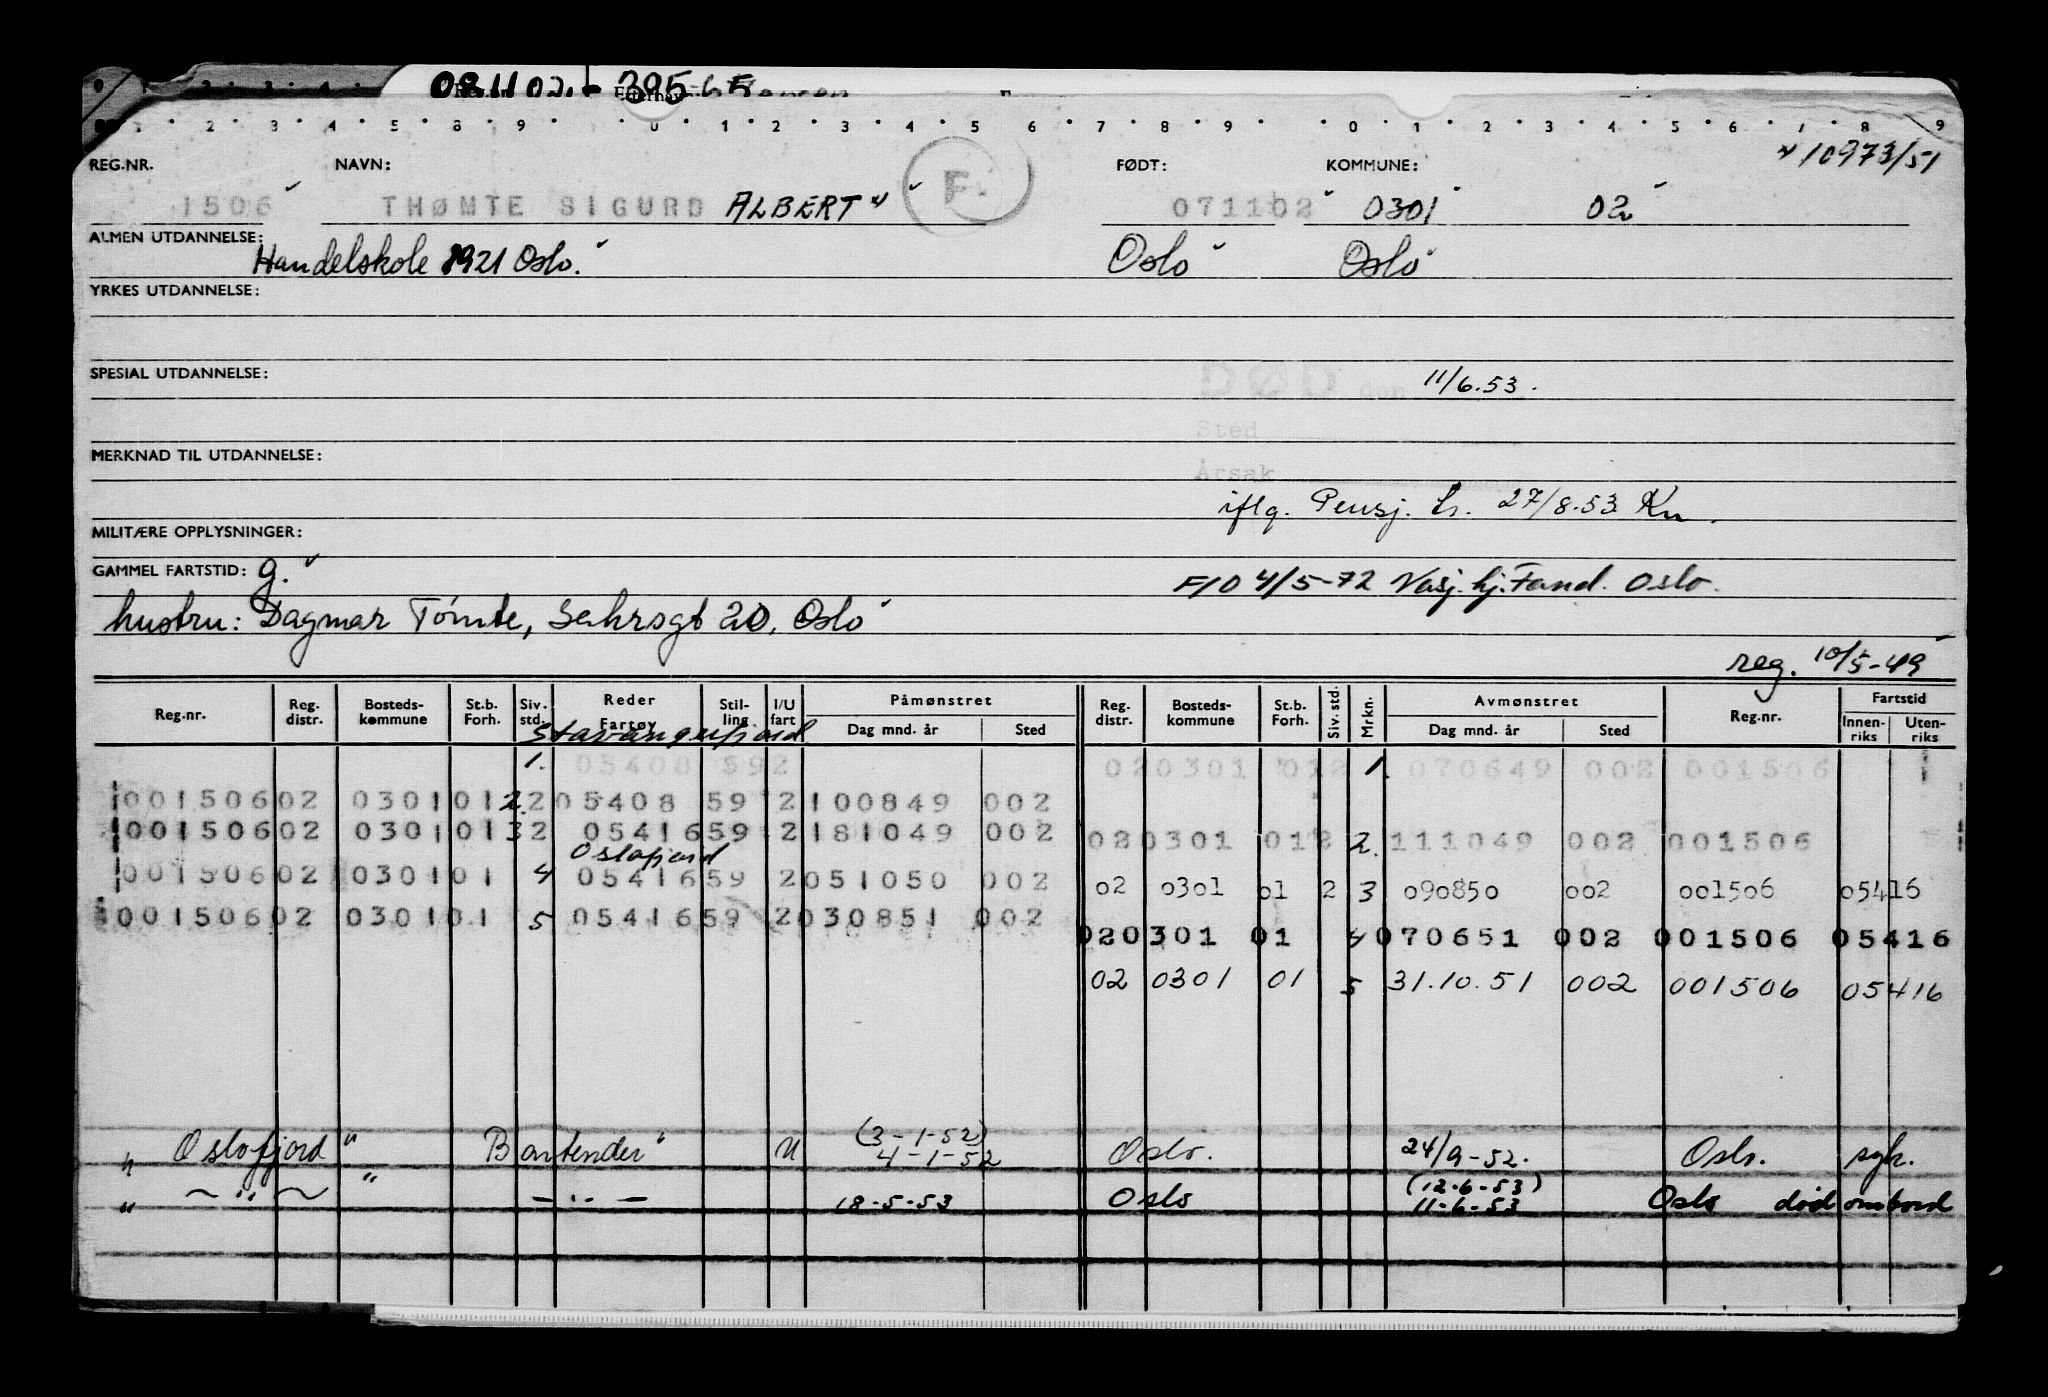 081102 395
Efternavn
1 2 3 4 5 8 9 0 1 2 3 4 5 6 7 8 9 0 1 2 3 4 5 6 7 8 9
10973/51
REG.NR. NAVN: FØDT: KOMMUNE:
1506 THØMTE SIGURD ALBERT F. 071102 0301 02
ALMEN UTDANNELSE: Handelskole 1921 Oslo. Oslo Oslo
YRKES UTDANNELSE:
SPESIAL UTDANNELSE: DØD den 11/6.53.
Sted
MERKNAD TIL UTDANNELSE: Årsak
iflg. Pensj. tr. 27/8.53 Kn.
MILITÆRE OPPLYSNINGER:
GAMMEL FARTSTID: g. F/O 4/5-72 Oslo.
hustru: Dagmar Tömte, 20, Oslo
reg. 10/5-49
Reg.nr. Reg. distr. Bosteds-kommune St.b. Forh. Siv. std. Reder Fartøy Stil-ling I/U fart Påmønstret Dag mnd. år Sted Reg. distr. Bosteds-kommune St.b. Forh. Siv. std. Mrkn. Avmønstret Dag mnd. år Sted Reg.nr. Fartstid Innen-riks Uten-riks
Stavangerfjord
1. 05408 592 020301 012 1. 070649 002 001506
001506 02 0301 01 2. 2 05408 59 2 100849 002
001506 02 0301 01 3 2 05416 59 2 181049 002 02 0301 012 2. 111049 002 001506
Oslofjord
001506 02 0301 01 4 05416 59 2 051050 002 02 0301 01 2 3 090850 002 001506 05416
001506 02 0301 01 5 05416 59 2 030851 002
02 0301 01 4 070651 002 001506 05416
02 0301 01 5 31.10.51 002 001506 05416
(3-1-52)
" Oslofjord " Bartender " U 4-1-52 Oslo. 24/9-52. Oslo. syk.
(12-6-53)
" — " — " — " — 18-5-53 Oslo 11-6-53 Oslo død ombord